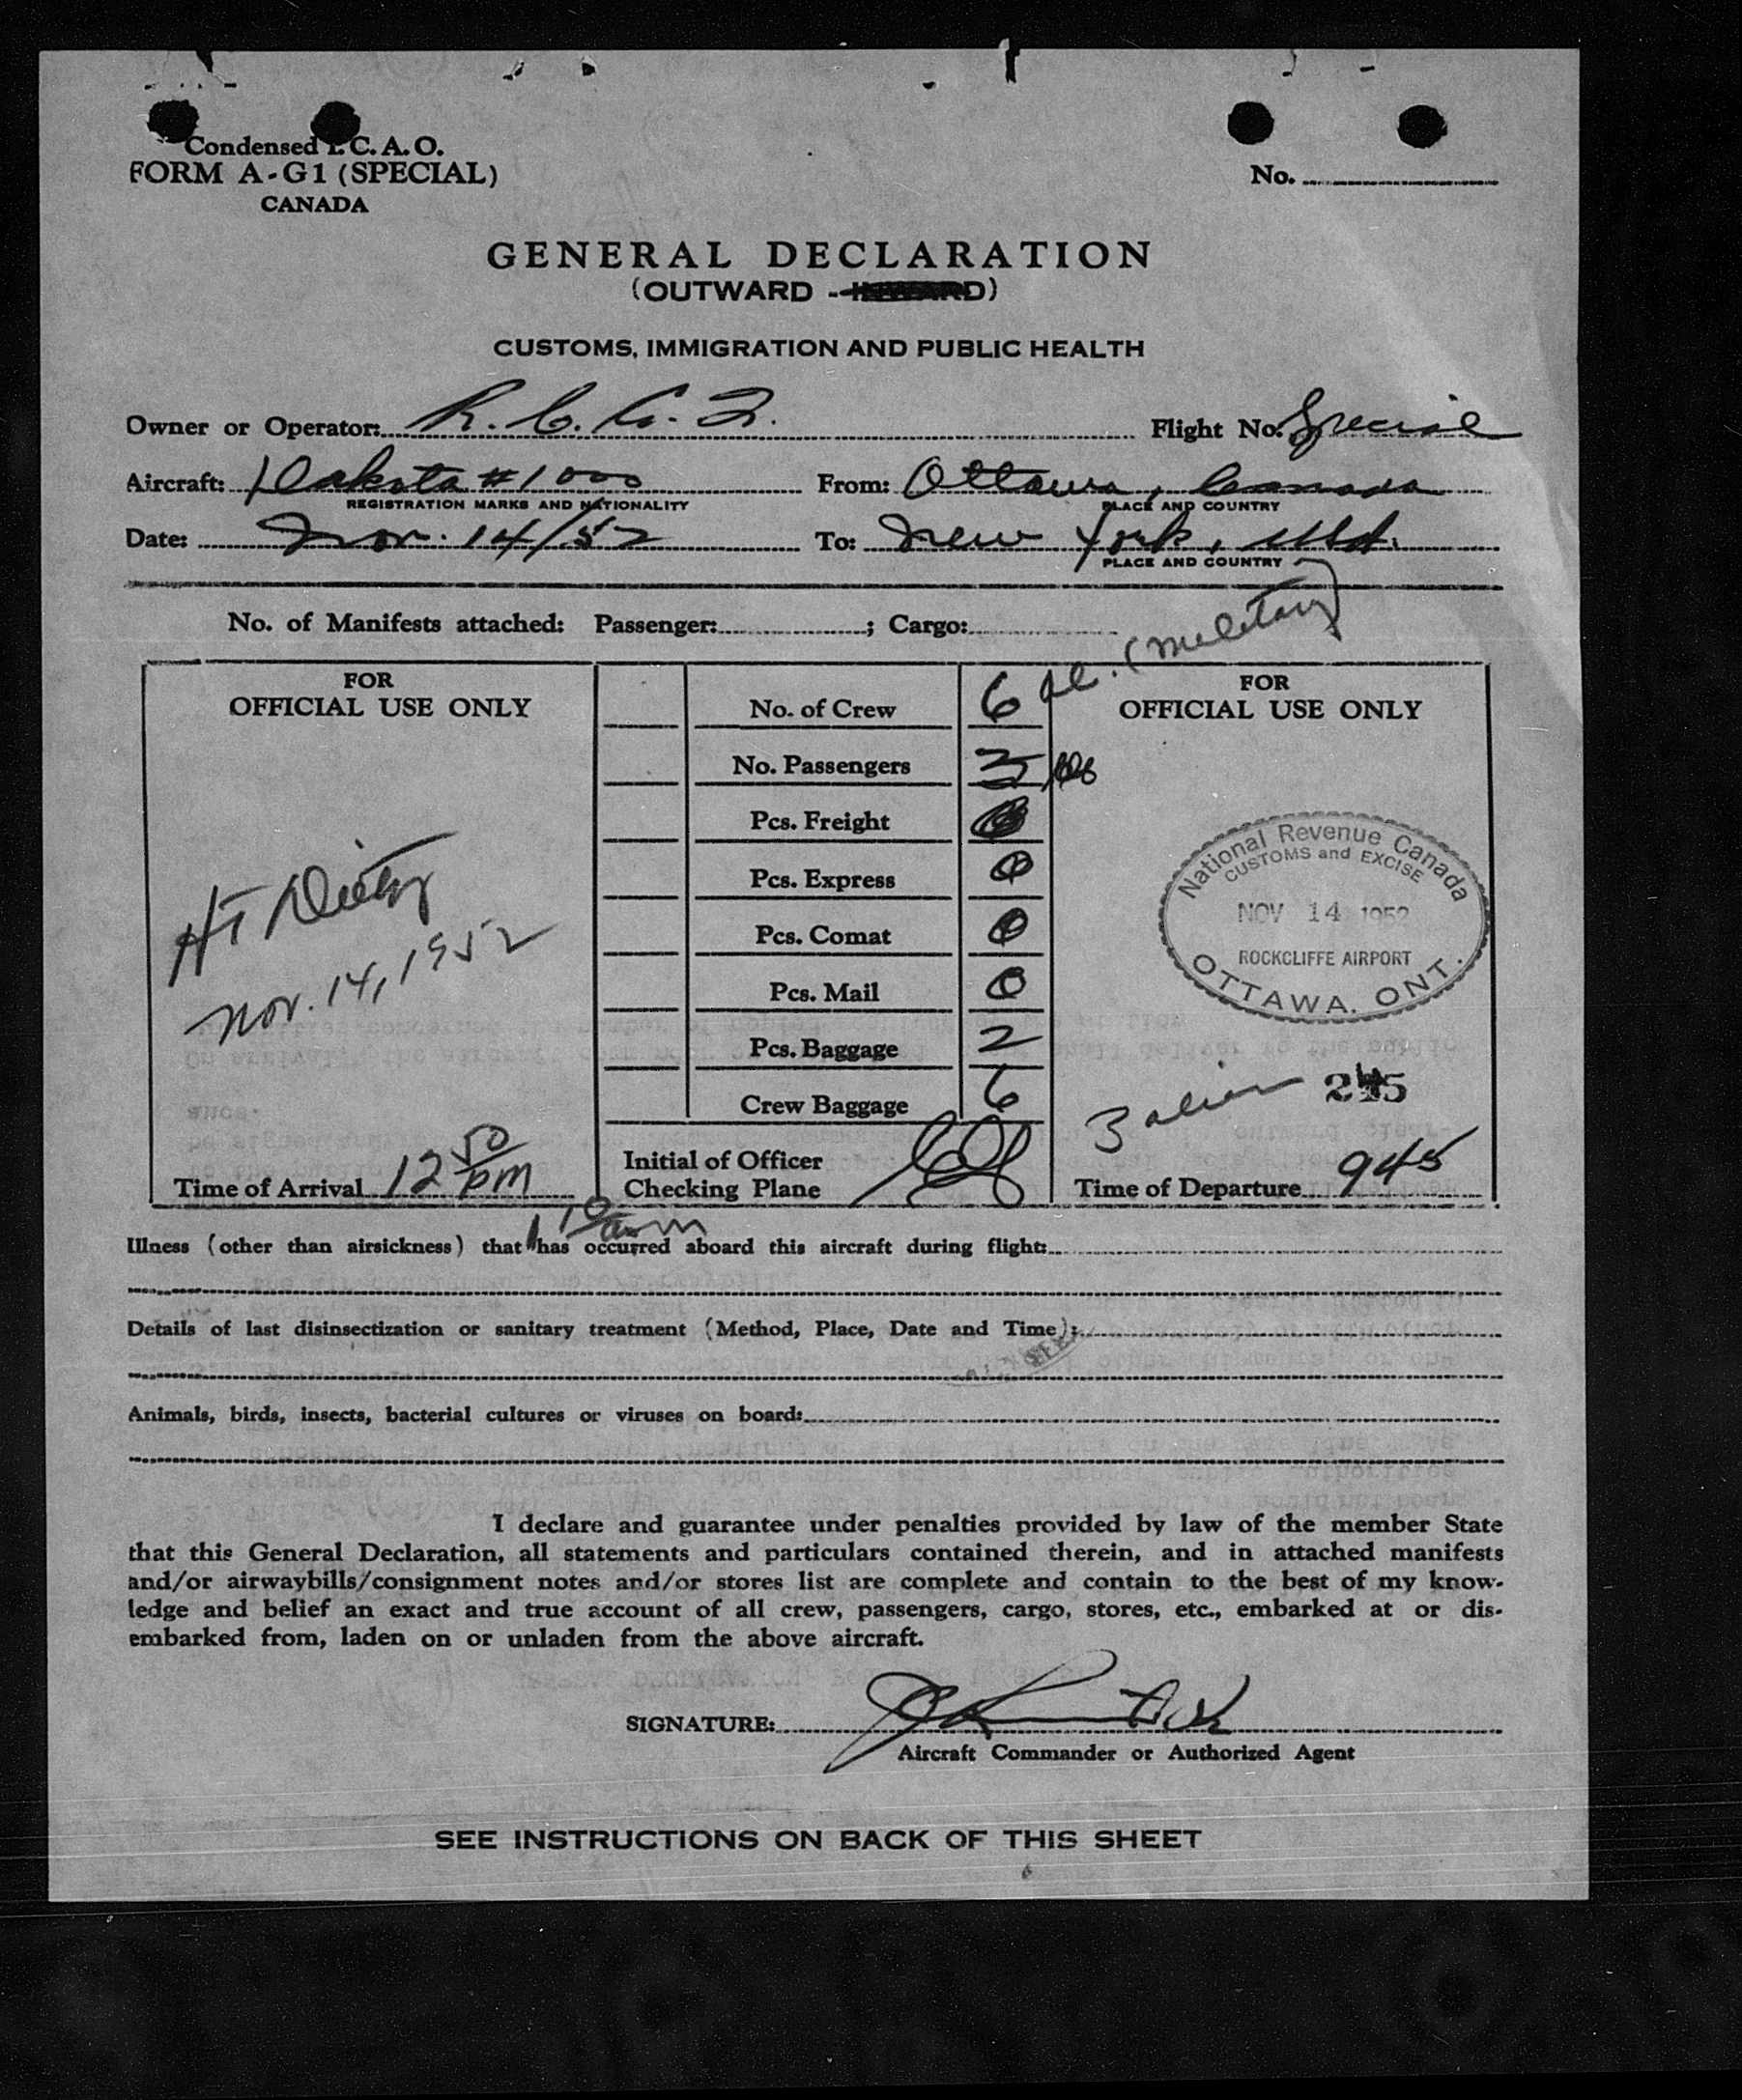 Condensed I. C. A. O.
FORM A-G1 (SPECIAL)
CANADA
No.
GENERAL DECLARATION
(OUTWARD - INWARD)
CUSTOMS, IMMIGRATION AND PUBLIC HEALTH
Owner or Operator: R. C. A. F. Flight No. Special
Aircraft: Dakota #1000 From: Ottawa, Canada
REGISTRATION MARKS AND NATIONALITY PLACE AND COUNTRY
Date: Nov. 14/52 To: New York, USA.
PLACE AND COUNTRY
No. of Manifests attached: Passenger: ; Cargo:
(military)
FOR
OFFICIAL USE ONLY
No. of Crew 6 al.
No. Passengers 3
Pcs. Freight
Pcs. Express 0
Pcs. Comat 0
Pcs. Mail 0
Pcs. Baggage 2
Crew Baggage 6
Initial of Officer
Checking Plane
Nov. 14, 1952
Time of Arrival 12 50 pm
FOR
OFFICIAL USE ONLY
National Revenue Canada
CUSTOMS and EXCISE
NOV 14 1952
ROCKCLIFFE AIRPORT
OTTAWA. ONT.
3 alien
Time of Departure 945
Illness (other than airsickness) that has occurred aboard this aircraft during flight:
Details of last disinsectization or sanitary treatment (Method, Place, Date and Time):
Animals, birds, insects, bacterial cultures or viruses on board:
I declare and guarantee under penalties provided by law of the member State
that this General Declaration, all statements and particulars contained therein, and in attached manifests
and/or airwaybills/consignment notes and/or stores list are complete and contain to the best of my know-
ledge and belief an exact and true account of all crew, passengers, cargo, stores, etc., embarked at or dis-
embarked from, laden on or unladen from the above aircraft.
SIGNATURE:
Aircraft Commander or Authorized Agent
SEE INSTRUCTIONS ON BACK OF THIS SHEET